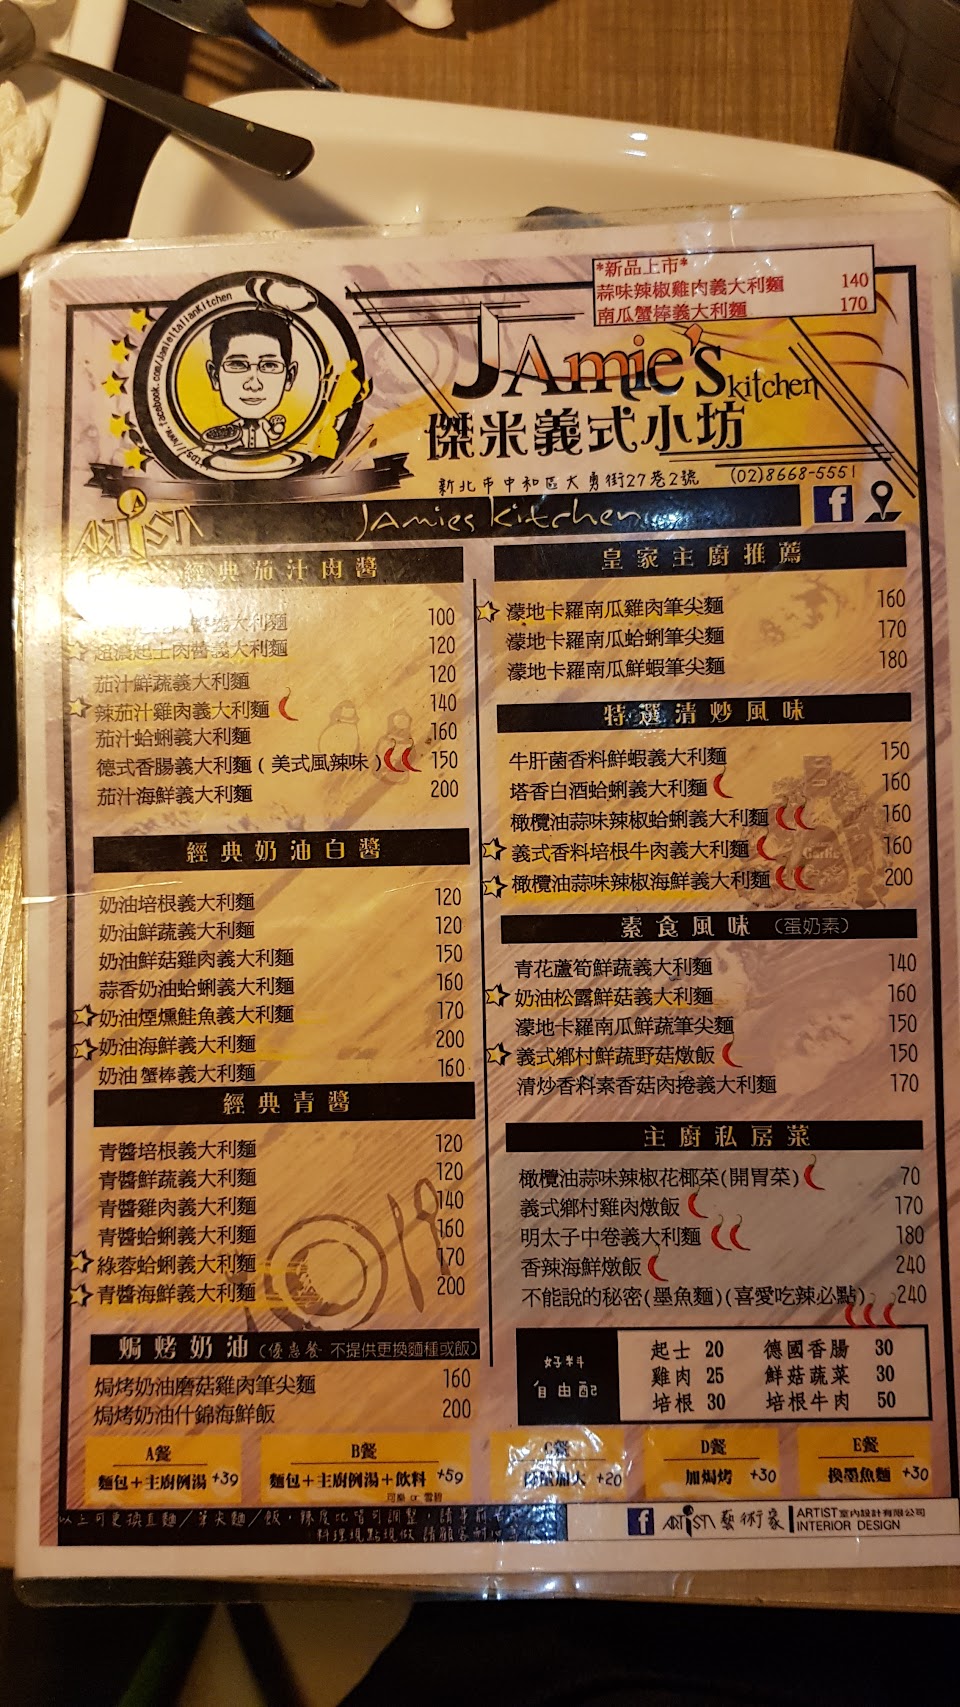 *新品上市*
蒜味辣椒雞肉義大利麵 140
南瓜蟹棒義大利麵 170
https://www.facebook.com/JamieItalianKitchen
JAmie's kitchen
傑米義式小坊
新北市中和區大勇街27巷2號 (02)8668-5551
ARTiSTA
JAmies Kitchen
經典茄汁肉醬
義大利麵 100
超濃起士肉醬義大利麵 120
茄汁鮮蔬義大利麵 120
辣茄汁雞肉義大利麵 140
茄汁蛤蜊義大利麵 160
德式香腸義大利麵(美式風辣味) 150
茄汁海鮮義大利麵 200
經典奶油白醬
奶油培根義大利麵 120
奶油鮮蔬義大利麵 120
奶油鮮菇雞肉義大利麵 150
蒜香奶油蛤蜊義大利麵 160
奶油煙燻鮭魚義大利麵 170
奶油海鮮義大利麵 200
奶油蟹棒義大利麵 160
經典青醬
青醬培根義大利麵 120
青醬鮮蔬義大利麵 120
青醬雞肉義大利麵 140
青醬蛤蜊義大利麵 160
綠蓉蛤蜊義大利麵 170
青醬海鮮義大利麵 200
焗烤奶油(優惠餐 不提供更換麵種或飯)
焗烤奶油磨菇雞肉筆尖麵 160
焗烤奶油什錦海鮮飯 200
皇家主廚推薦
濛地卡羅南瓜雞肉筆尖麵 160
濛地卡羅南瓜蛤蜊筆尖麵 170
濛地卡羅南瓜鮮蝦筆尖麵 180
特選清炒風味
牛肝菌香料鮮蝦義大利麵 150
塔香白酒蛤蜊義大利麵 160
橄欖油蒜味辣椒蛤蜊義大利麵 160
義式香料培根牛肉義大利麵 160
橄欖油蒜味辣椒海鮮義大利麵 200
Garlic
素食風味 (蛋奶素)
青花蘆筍鮮蔬義大利麵 140
奶油松露鮮菇義大利麵 160
濛地卡羅南瓜鮮蔬筆尖麵 150
義式鄉村鮮蔬野菇燉飯 150
清炒香料素香菇肉捲義大利麵 170
主廚私房菜
橄欖油蒜味辣椒花椰菜(開胃菜) 70
義式鄉村雞肉燉飯 170
明太子中卷義大利麵 180
香辣海鮮燉飯 240
不能說的秘密(墨魚麵)(喜愛吃辣必點) 240
好料
自由配
起士 20 德國香腸 30
雞肉 25 鮮菇蔬菜 30
培根 30 培根牛肉 50
A餐
麵包+主廚例湯 +39
B餐
麵包+主廚例湯+飲料 +59
可樂 or 雪碧
C餐
加大 +20
D餐
加焗烤 +30
E餐
換墨魚麵 +30
以上可更換直麵/筆尖麵/飯,辣度比皆可調整,請事前
料理現點現做 請顧客耐心
ARTiSTA 藝術家
ARTIST室內設計有限公司
INTERIOR DESIGN